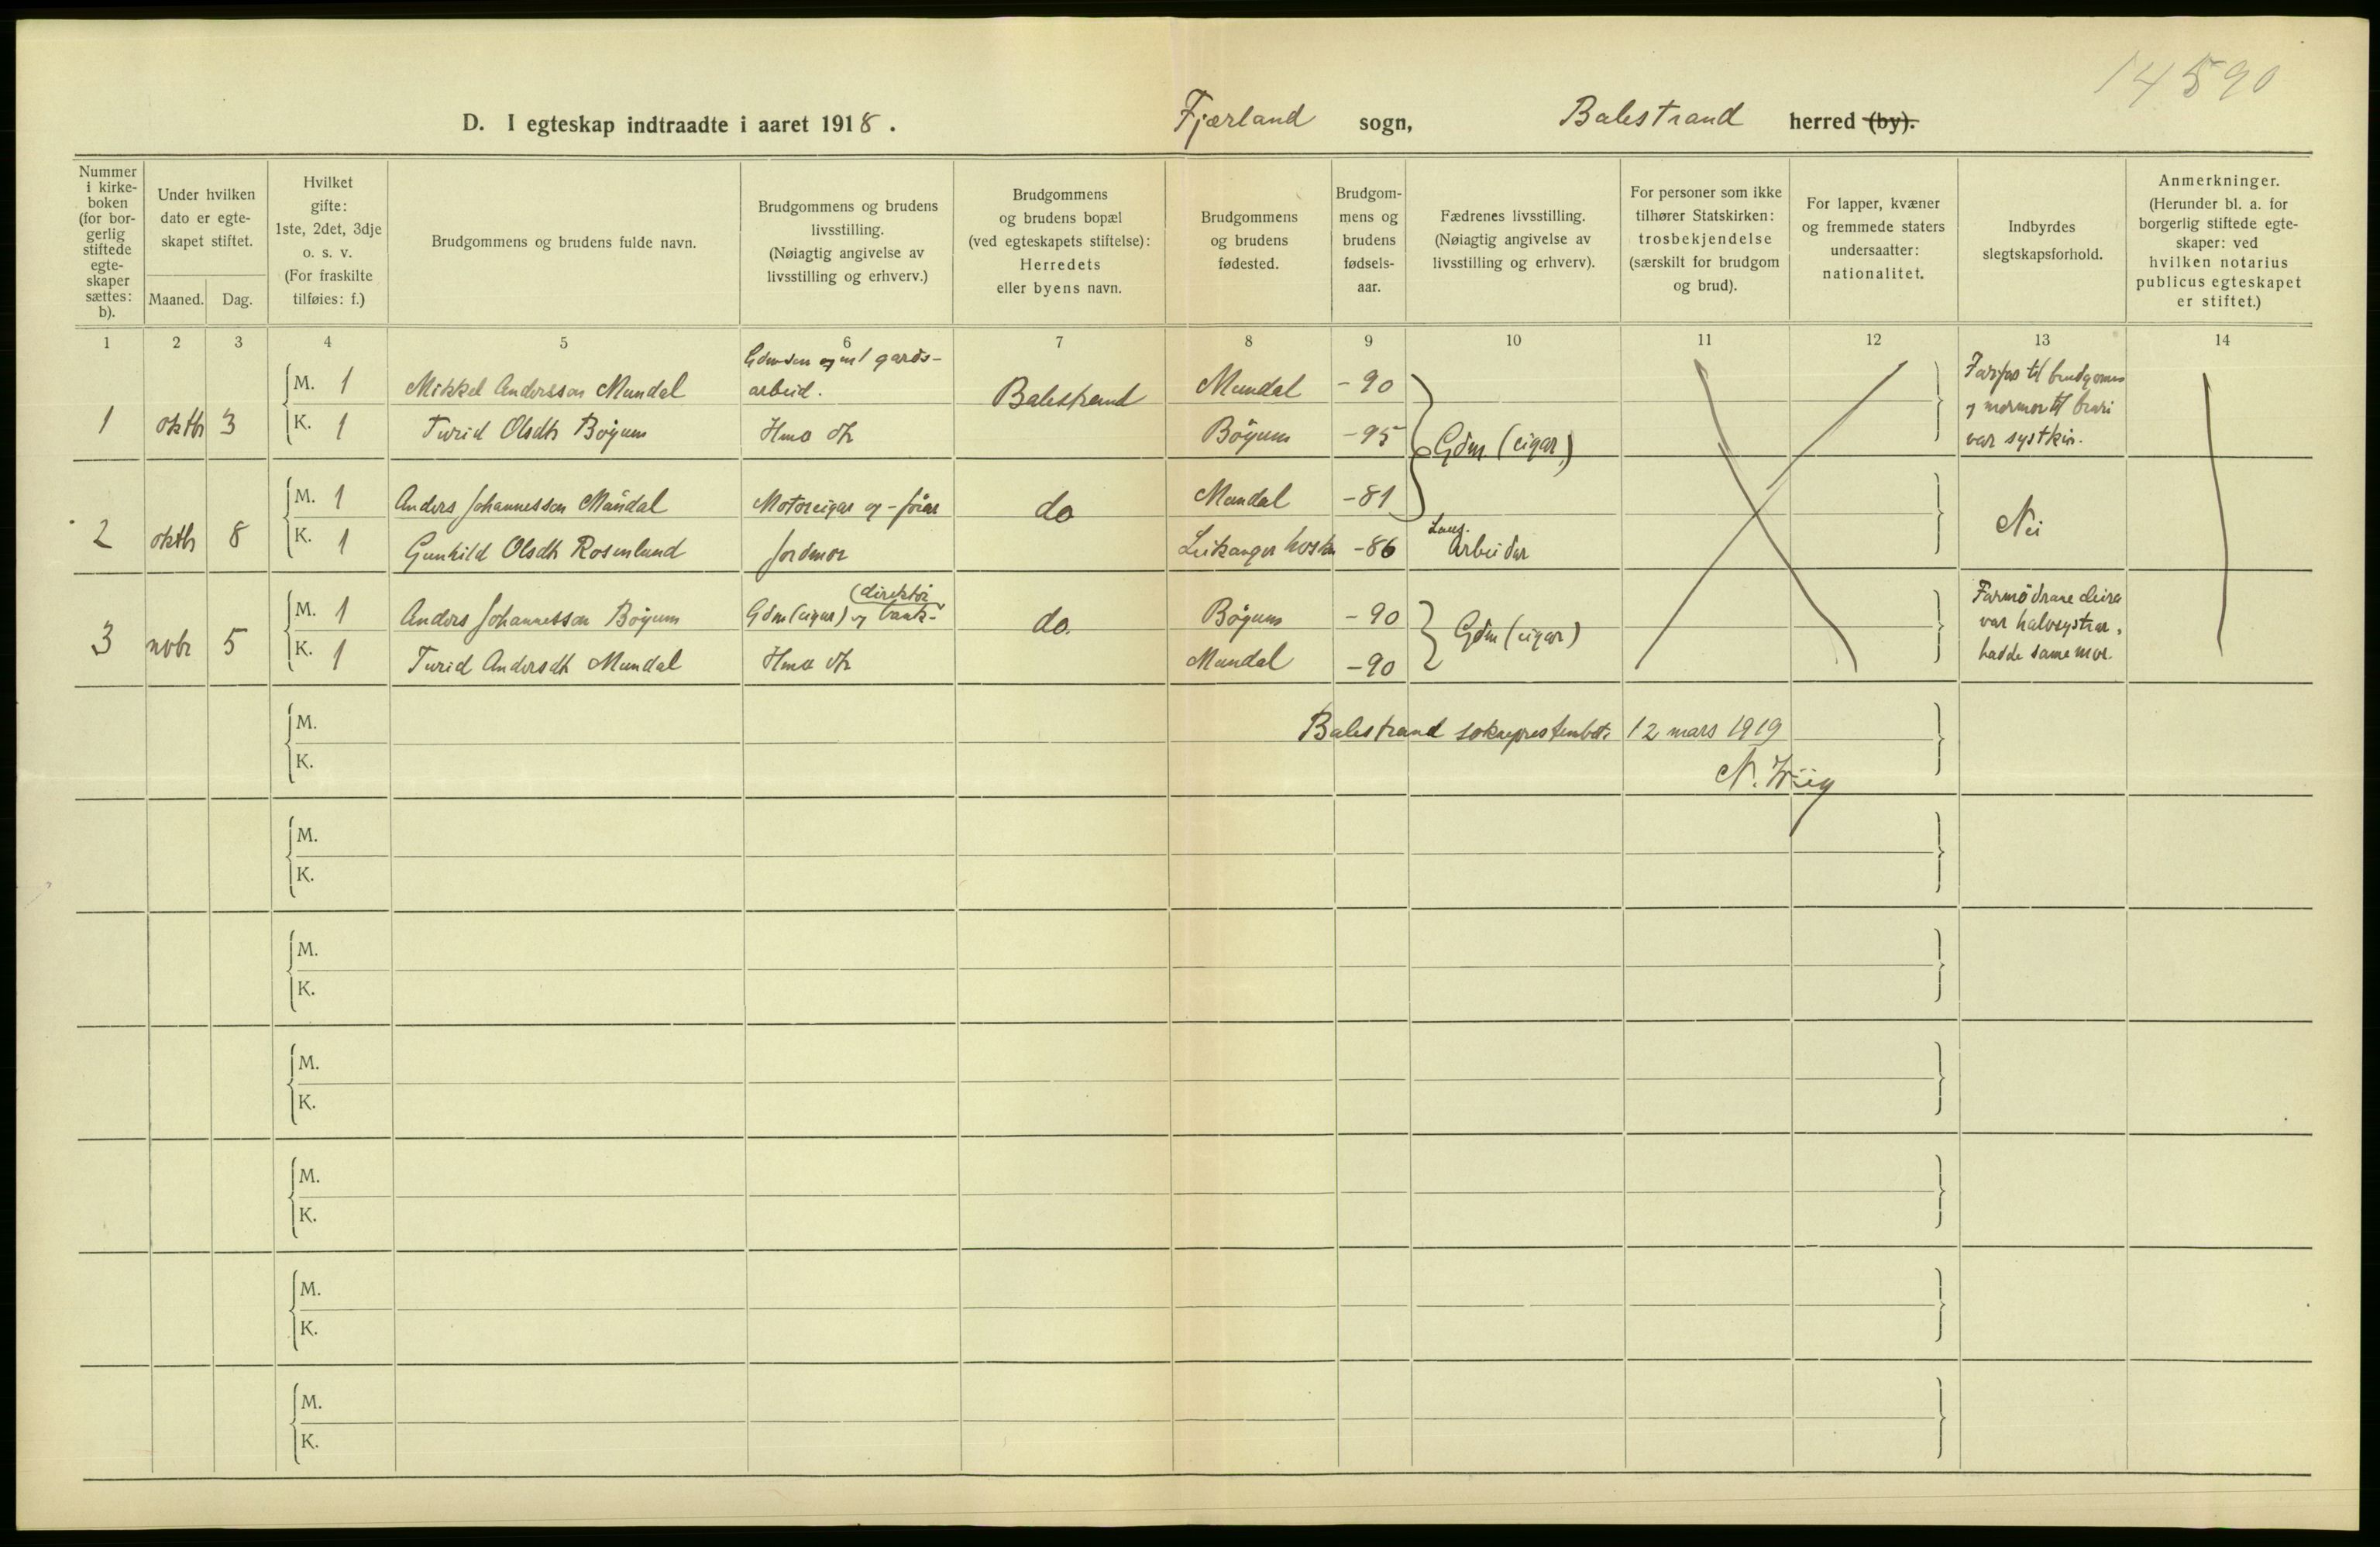 14590
D. I egteskap indtraadte i aaret 1918. Fjærland sogn, Balestrand herred (by).
Nummer i kirke-boken (for bor-gerlig stiftede egte-skaper sættes: b).
Under hvilken dato er egte-skapet stiftet.
Maaned. Dag.
Hvilket gifte: 1ste, 2det, 3dje o. s. v. (For fraskilte tilføies: f.)
Brudgommens og brudens fulde navn.
Brudgommens og brudens livsstilling. (Nøiagtig angivelse av livsstilling og erhverv.)
Brudgommens og brudens bopæl (ved egteskapets stiftelse): Herredets eller byens navn.
Brudgommens og brudens fødested.
Brudgom-mens og brudens fødsels-aar.
Fædrenes livsstilling. (Nøiagtig angivelse av livsstilling og erhverv).
For personer som ikke tilhører Statskirken: trosbekjendelse (særskilt for brudgom og brud).
For lapper, kvæner og fremmede staters undersaatter: nationalitet.
Indbyrdes slegtskapsforhold.
Anmerkninger. (Herunder bl. a. for borgerlig stiftede egte-skaper: ved hvilken notarius publicus egteskapet er stiftet.)
1 2 3 4 5 6 7 8 9 10 11 12 13 14
1 oktbr 3
M. 1 Mikkel Andersson Mundal Gdmson og m/ gards-arbeid. Balestrand Mundal -90
K. 1 Turid Olsdtr Bøyum Hmo dtr Bøyum -95
Gdm. (eigar)
Farfar til brudgomen
og mormor til bruri
var systkin.
2 oktbr 8
M. 1 Anders Johannesson Mundal Motoreigar og -førar do Mundal -81
K. 1 Gunhild Olsdtr Rosenlund Jordmor Leikanger -86 Laus. Arbeidar
Nei
3 nobr 5
M. 1 Anders Johannesson Bøyum Gdm (eigar) og bank- (direktør do. Bøyum -90
K. 1 Turid Andersdtr Mundal Hmo dtr Mundal -90
Gdm (eigar)
Farmødrane deira
var halvsystrar,
hadde same mor.
M.
K.
Balestrand sokneprestembæt. 12 mars 1919
N. Wiig
M.
K.
M.
K.
M.
K.
M.
K.
M.
K.
M.
K.